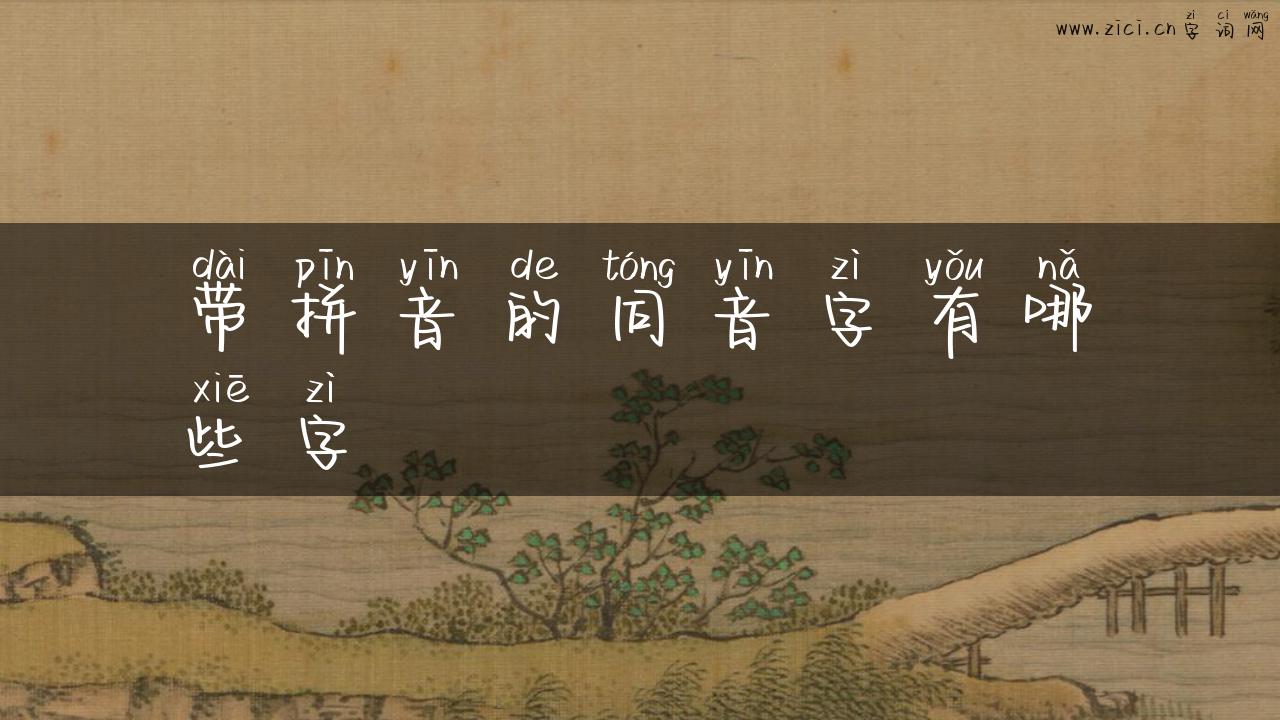 zì cí wǎng
www.zici.cn字词网
dài pīn yīn de tóng yīn zì yǒu nǎ
带拼音的同音字有哪
xiē zì
些字